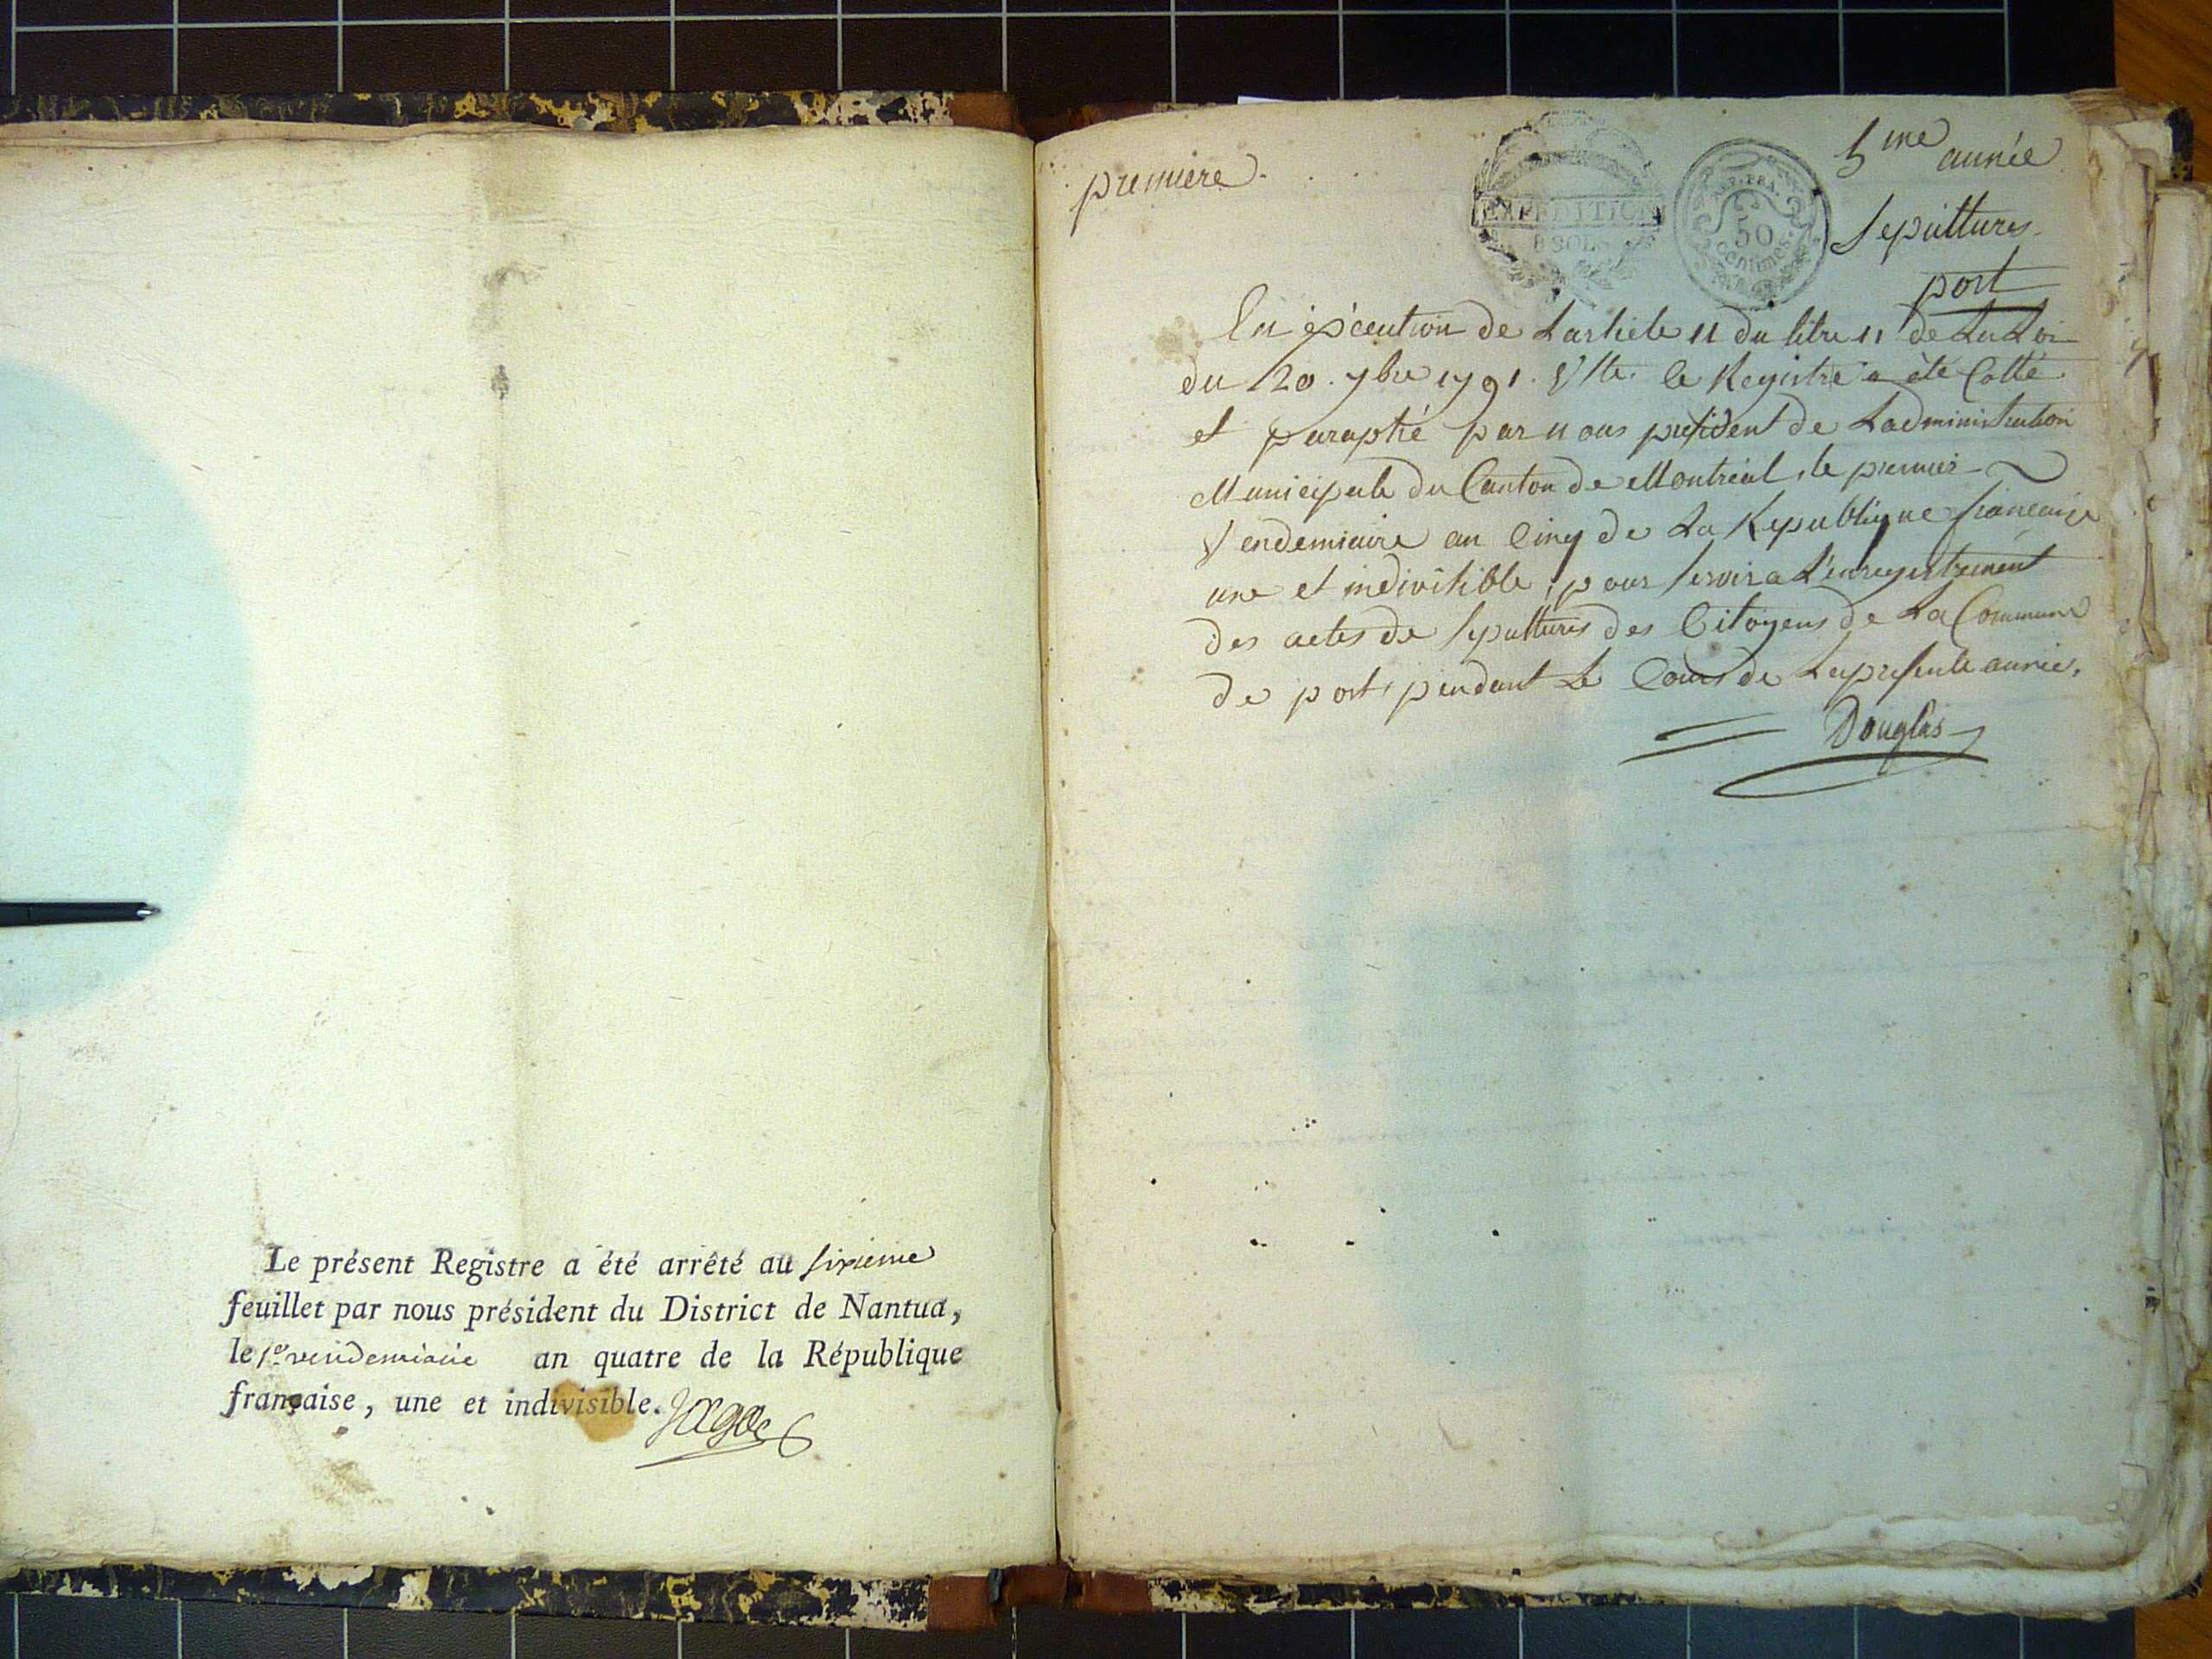 Le présent Registre a été arrêté au sixieme
feuillet par nous président du District de Nantua,
le 1er vendemiaire an quatre de la République
française, une et indivisible.
premiere.
EXPEDITION
8 SOLS
REP. FRA.
50
centimes
5me année
Sepultures
port
En éxécution de Larticle 11 du titre 11 de La Loi
du 20. 7bre 1791. V. Ste. le Registre a été Cotté
et paraphé par nous president de Ladministration
Municipale du Canton de Montréal, le premier
Vendemiaire an Cinq de La Republique francaise
une et indivisible, pour servir a L'enregistrement
des actes de sepultures des Citoyens de La Commune
de port, pendant Le Cours de La presente année.
Douglas